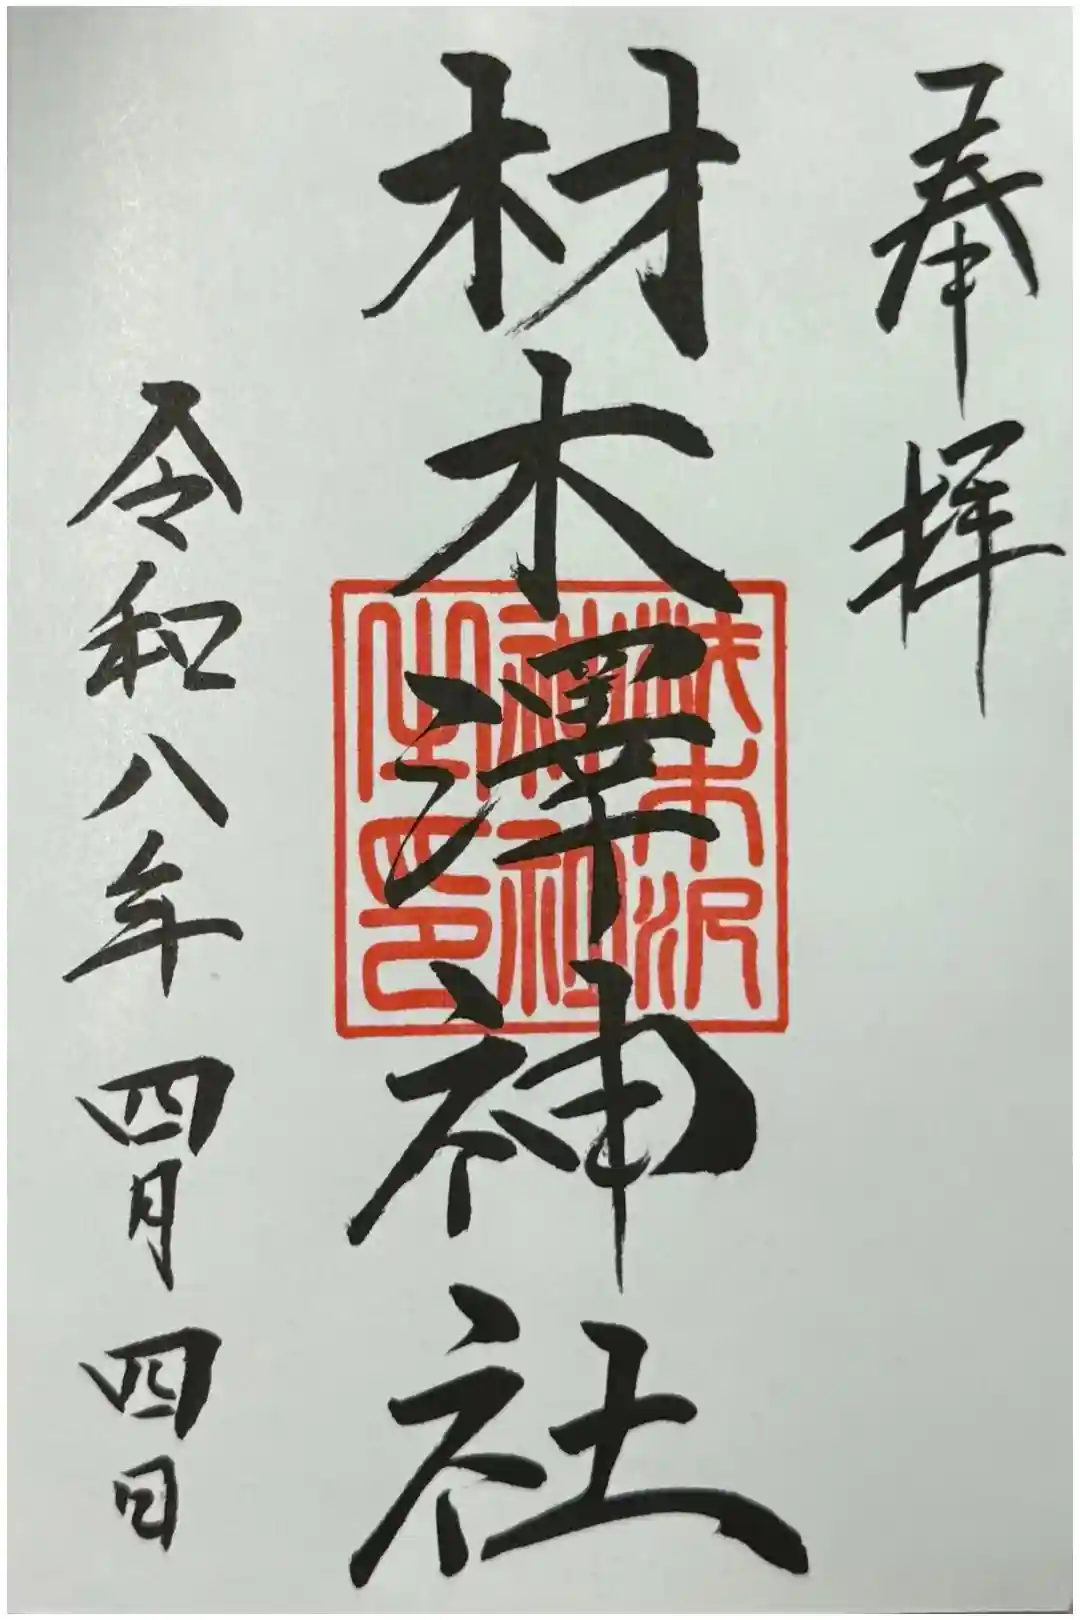 奉拝
材木澤神社
木沢
神社
之印
令和八年四月四日